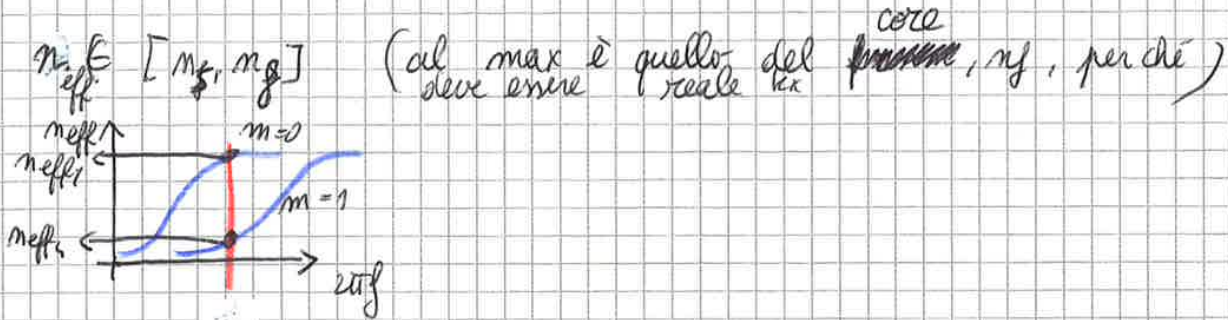 core
n_eff ∈ [n_s, n_g] (al max è quello del , nf, perché)
deve essere reale kx
neff
m=0
neff1
m=1
neff2
2πf